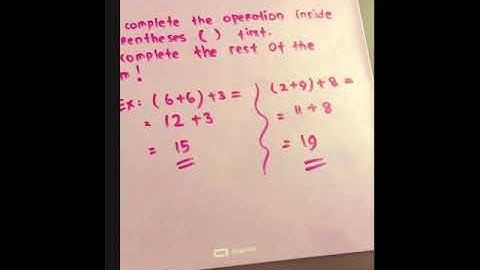 complete the operation inside
entheses ( ) first.
complete the rest of the
m!
Ex: (6+6)+3=
= 12 +3
= 15
(2+9)+8=
= 11+8
= 19